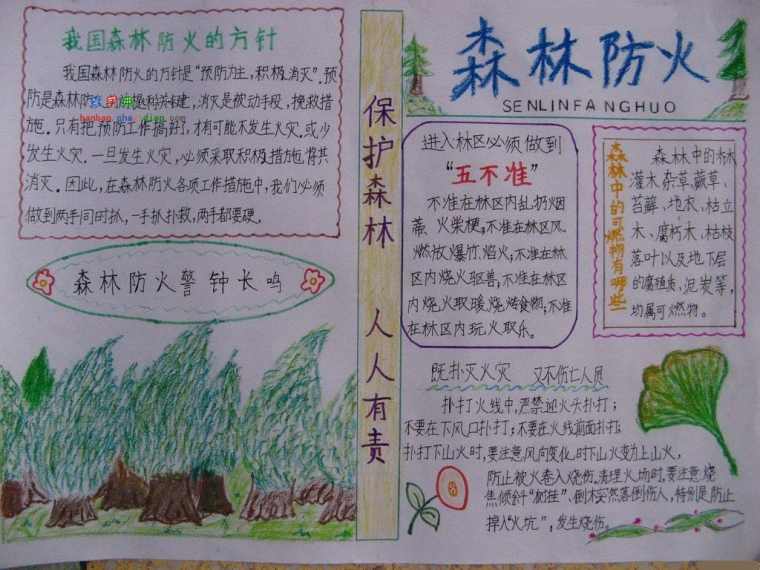 我国森林防火的方针
我国森林防火的方针是“预防为主，积极消灭”.预
防是森林防火的前提和关键，消灭是被动手段，挽救措
施.只有把预防工作搞好，才有可能不发生火灾.或少
发生火灾.一旦发生火灾，必须采取积极措施，将其
消灭.因此，在森林防火各项工作措施中，我们必须
做到两手同时抓，一手抓扑救，两手都要硬.
森林防火警钟长鸣
保护森林 人人有责
森林防火
SENLINFANGHUO
进入林区必须做到
“五不准”
不准在林区内乱扔烟
蒂、火柴梗；不准在林区风
燃放爆竹、焰火；不准在林
区内烧火驱兽；不准在林区
内烧火取暖、烧烤食物；不准
在林区内玩火取乐.
森林中的可燃物有哪些
森林中的林
灌木杂草、藏草、
苔藓、地衣、枯立
木、腐朽木、枯枝
落叶以及地下层
的腐殖质、泥炭等，
均属可燃物.
既扑灭火灾 又不伤亡人员
扑打火线中，严禁迎火头扑打；
不要在下风口扑打；不要在火线前面扑打；
扑打下山火时，要注意风向变化时下山火变为上山火，
防止被火卷入烧伤.清理火场时，要注意烧
焦倾斜“树挂”、倒木突然落倒伤人，特别是防止
掉入“火坑”，发生烧伤.